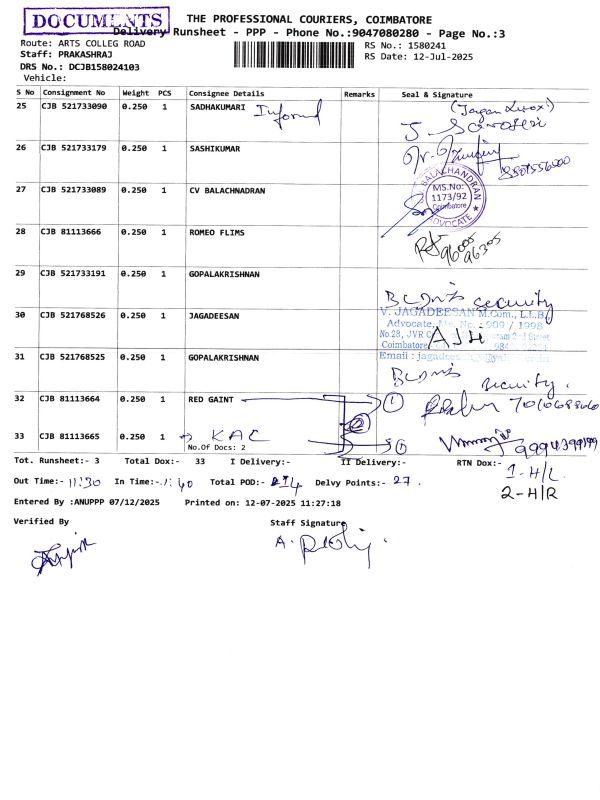 DOCUMENTS
THE PROFESSIONAL COURIERS, COIMBATORE
Delivery Runsheet - PPP - Phone No.:9047080280 - Page No.:3
Route: ARTS COLLEG ROAD
RS No.: 1580241
Staff: PRAKASHRAJ
RS Date: 12-Jul-2025
DRS No.: DCJB158024103
Vehicle:
S No Consignment No Weight PCS Consignee Details Remarks Seal & Signature
25 CJB 521733090 0.250 1 SADHAKUMARI Informd
26 CJB 521733179 0.250 1 SASHIKUMAR
27 CJB 521733089 0.250 1 CV BALACHNADRAN
BALACHANDRAN
MS.No:
1173/92
Coimbatore
ADVOCATE
28 CJB 81113666 0.250 1 ROMEO FLIMS
29 CJB 521733191 0.250 1 GOPALAKRISHNAN
security
30 CJB 521768526 0.250 1 JAGADEESAN
V. JAGADEESAN M.Com., L.L.B.
Advocate, 909 / 1998
No.28, JVR 2nd Street
Coimbatore
Email : jagadees
31 CJB 521768525 0.250 1 GOPALAKRISHNAN
security.
32 CJB 81113664 0.250 1 RED GAINT 1
2
33 CJB 81113665 0.250 1 KAC 9994399199
No.Of Docs: 2
Tot. Runsheet:- 3 Total Dox:- 33 I Delivery:- II Delivery:- RTN Dox:- 1-H/L
Out Time:- 11:30 In Time:- Total POD:- Delvy Points:- 27.
2-H/R
Entered By :ANUPPP 07/12/2025 Printed on: 12-07-2025 11:27:18
Verified By Staff Signature